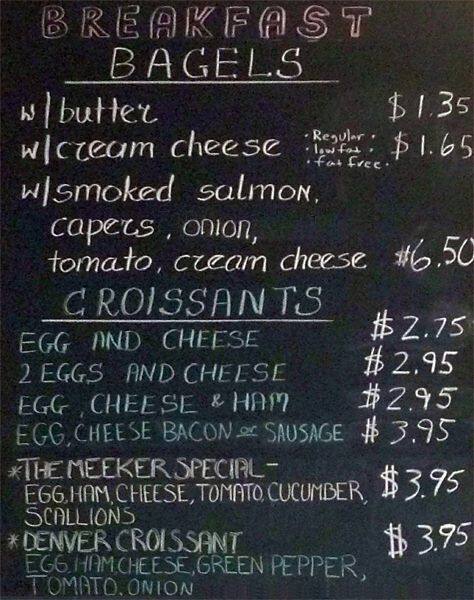 BREAKFAST
BAGELS
w/butter $1.35
w/cream cheese • Regular • • lowfat • • fat free • $1.65
w/smoked salmon,
capers, onion,
tomato, cream cheese $6.50
CROISSANTS
EGG AND CHEESE $2.75
2 EGGS AND CHEESE $2.95
EGG, CHEESE & HAM $2.95
EGG, CHEESE BACON or SAUSAGE $3.95
*THE MEEKER SPECIAL-
EGG, HAM, CHEESE, TOMATO, CUCUMBER, $3.95
SCALLIONS
*DENVER CROISSANT $3.95
EGG, HAM, CHEESE, GREEN PEPPER,
TOMATO, ONION